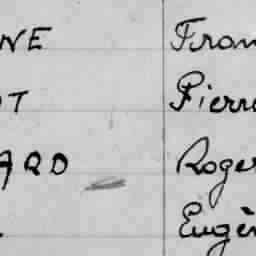 NE Fran
OT Pierre
ARD Roger
Eugèn